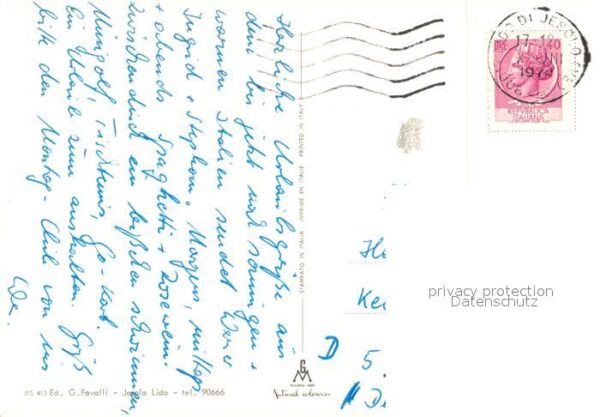 Herzliche Urlaubsgrüße aus
dem bis jetzt noch sonnigen +
warmen Italien sendet Dir
Ingrid + Stephan. Morgens, mittags
+ abends Spaghetti + Rosewein.
zwischendurch ein bißchen schwimmen,
Minigolf, Tischtennis, Go-Kart.
Ein Urlaub zum aushalten. Grüß
bitte den Montag - Club von uns
STAMPATO IN ITALIA IMPRIMÉ EN ITALIE PRINTED IN ITALY
LIDO DI JESOLO
17-18
1974
LIRE 40
REPVBBLICA
ITALIANA
privacy protection
Datenschutz
He
Ke
D 5
Ed. G. Favalli - Jesolo Lido - tel. 90666
G
M
MILANO
Natural colours